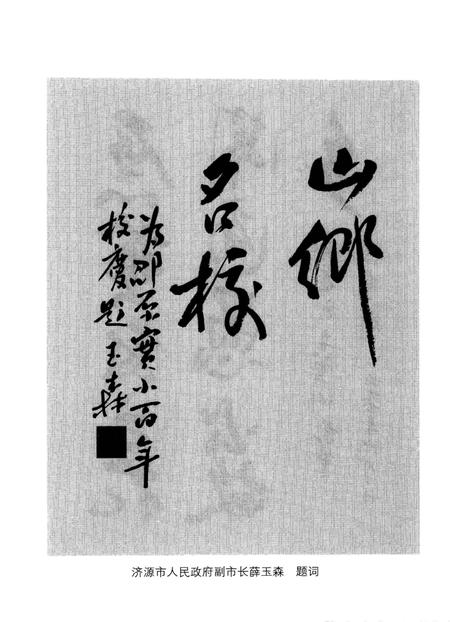 山鄉
名校
为邵原實小百年
校慶題 玉森
济源市人民政府副市长薛玉森 题词